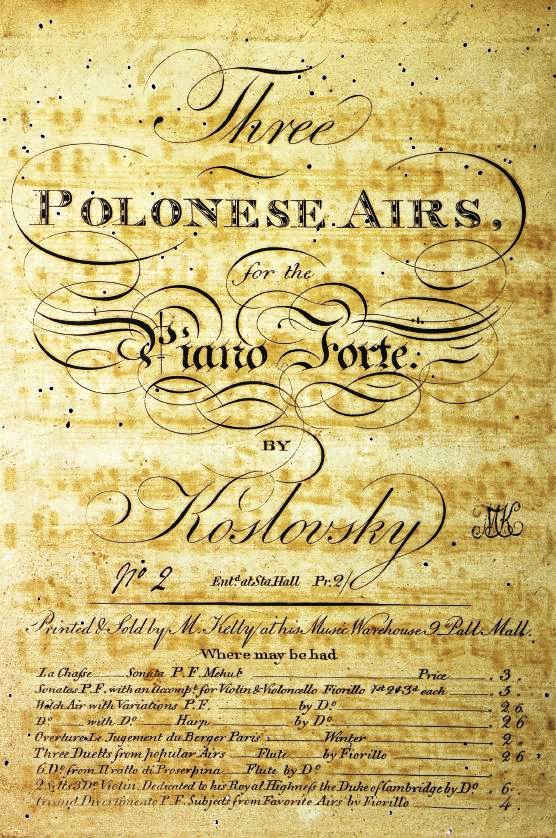 Three
POLONESE AIRS,
for the
Piano Forte.
BY
Koslovsky
MK
No 2 Entd. at Sta. Hall Pr. 2/
Printed & Sold by M. Kelly, at his Music Warehouse 9 Pall Mall.
Where may be had
La Chasse Sonata P.F. Mehul Price 3
Sonatas P.F. with an Accompt. for Violin & Violoncello Fiorillo 1st 2 & 3d each 5
Welch Air with Variations P.F. by Do 2 6
Do with Do Harp by Do 2 6
Overture Le Jugement du Berger Paris Winter 2
Three Duetts from popular Airs Flute by Fiorillo 2 6
6 Do from Il ratto di Proserpina Flute by Do
2 Setts 3 Do Violin, Dedicated to his Royal Highness the Duke of Cambridge by Do 6
Grand Divertimento P.F. Subjects from Favorite Airs by Fiorillo 4